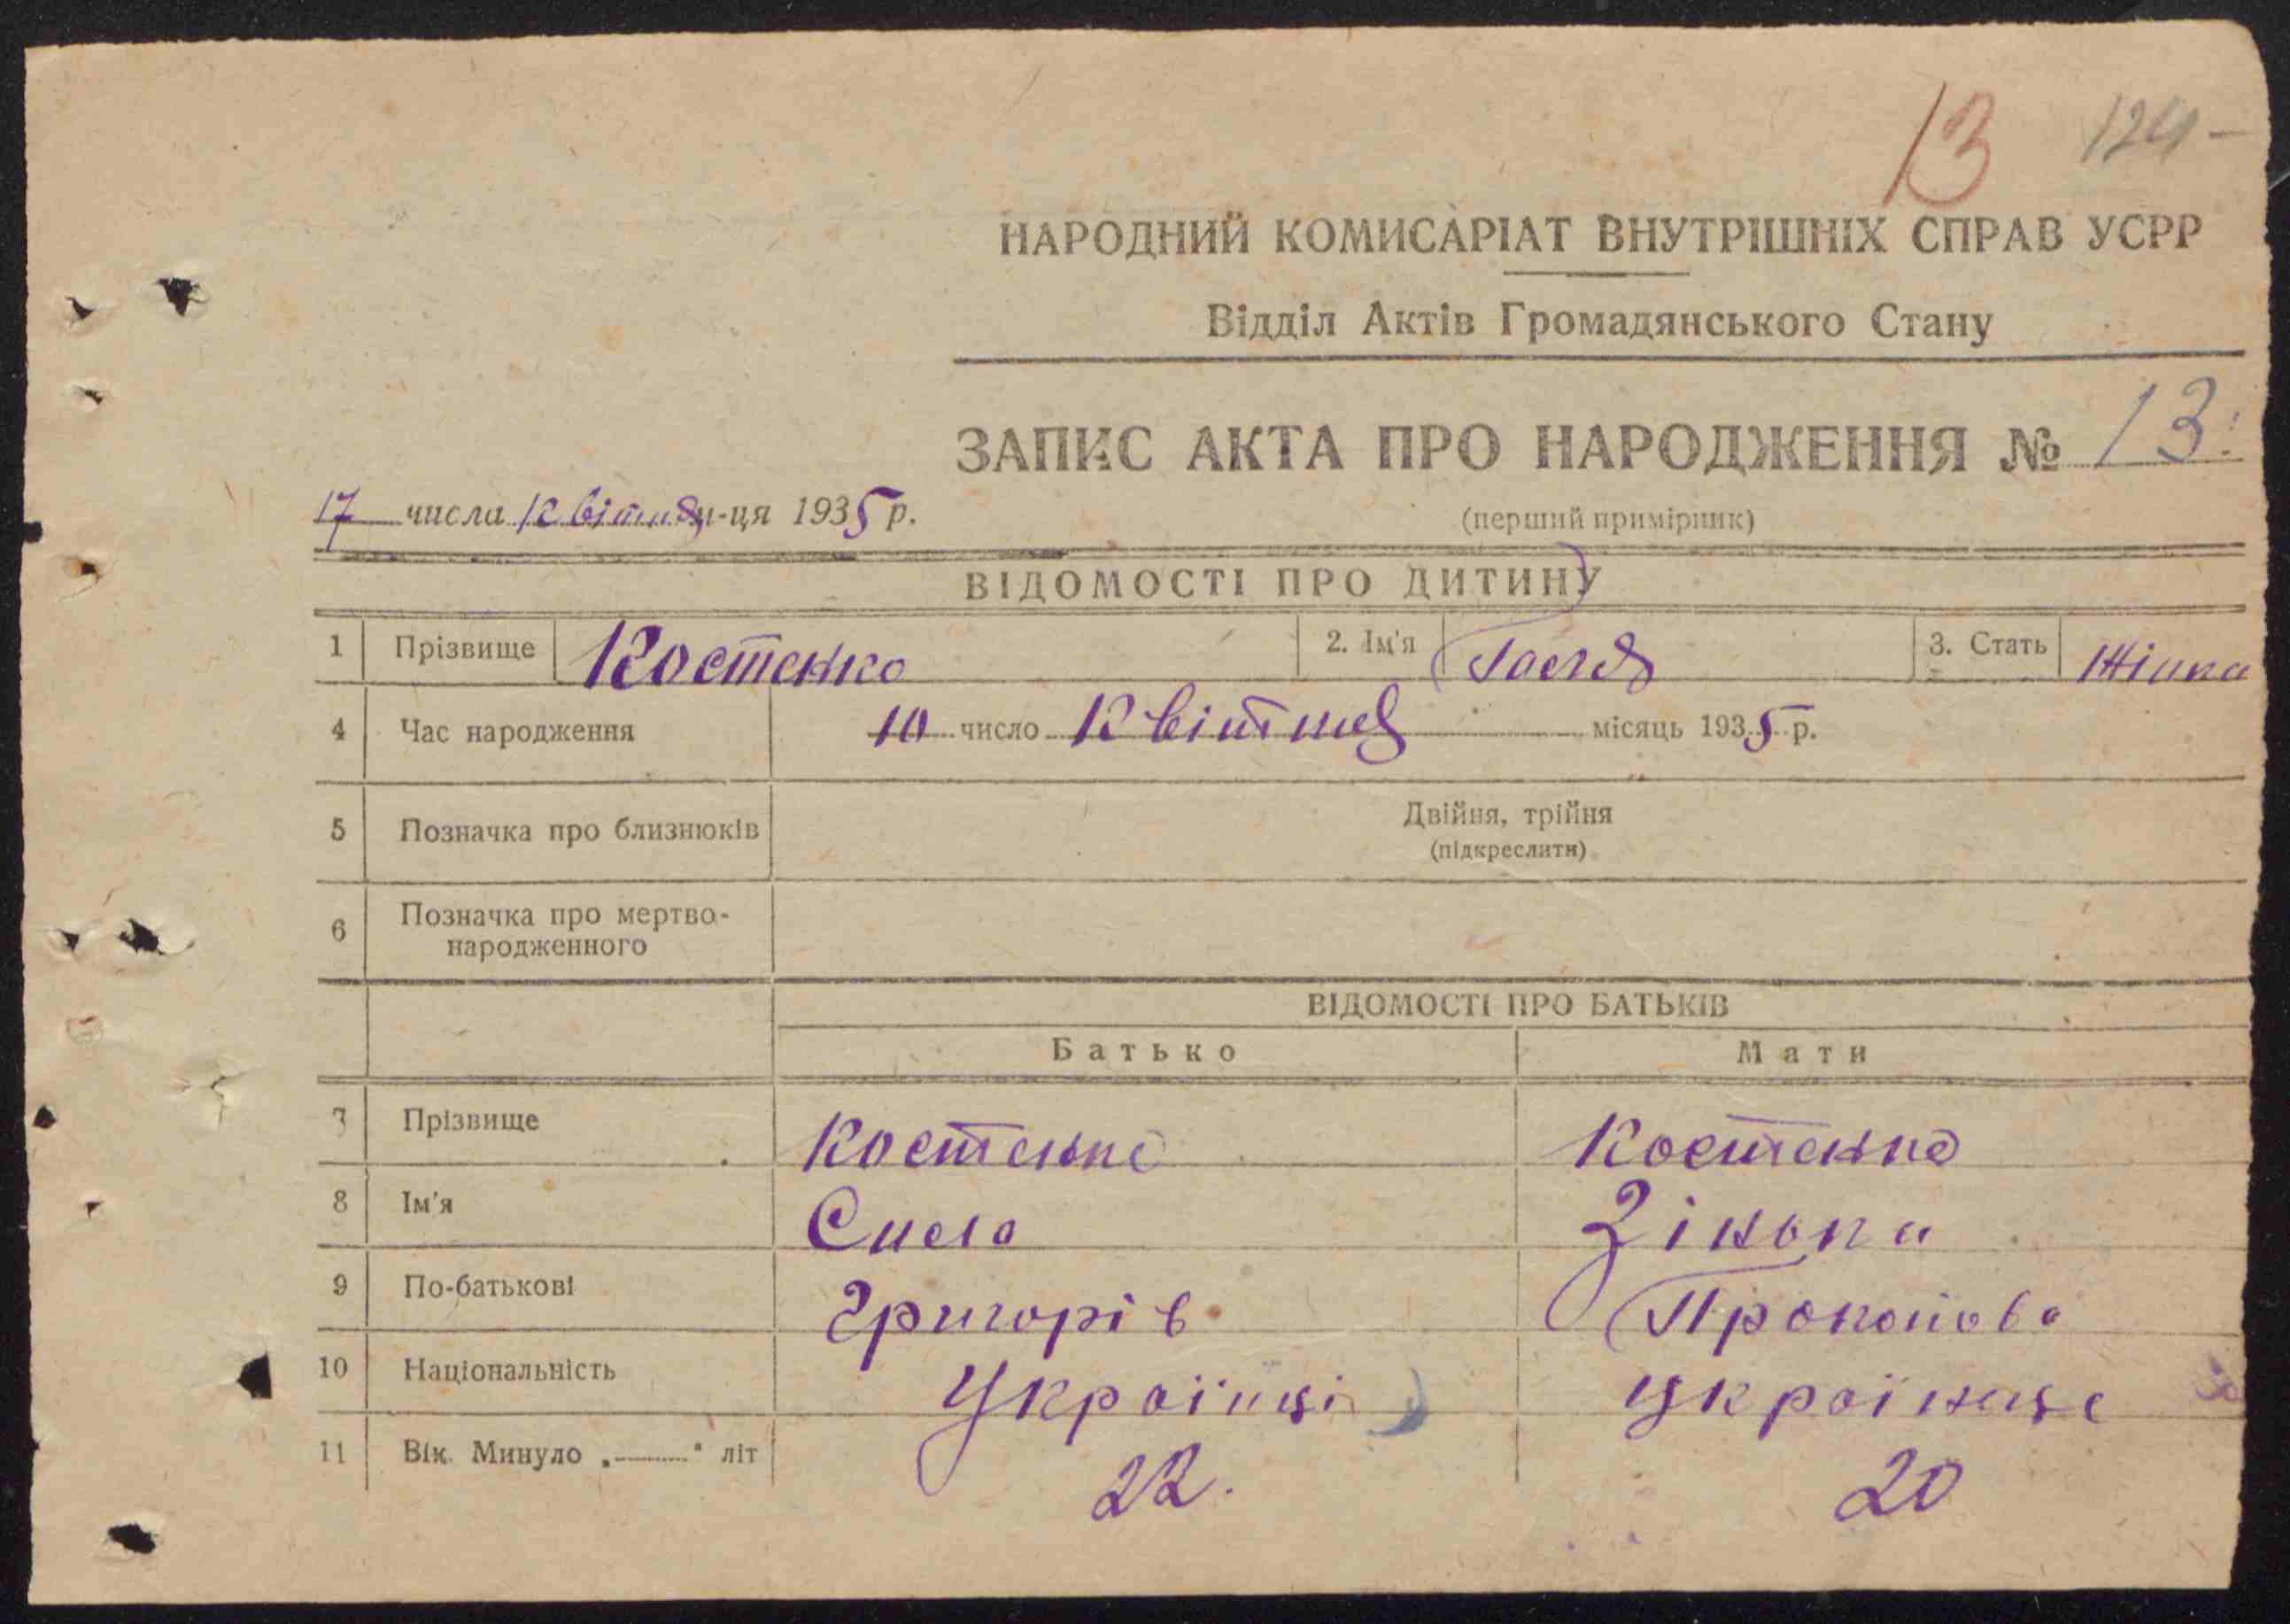 13 124-
НАРОДНИЙ КОМИСАРІАТ ВНУТРІШНІХ СПРАВ УСРР
Відділ Актів Громадянського Стану
ЗАПИС АКТА ПРО НАРОДЖЕННЯ № 13.
17 числа Квітня м-ця 1935 р.
(перший примірник)
ВІДОМОСТІ ПРО ДИТИНУ
1 Прізвище Костенко 2. Ім'я 3. Стать Жінка
4 Час народження 10 число Квітня місяць 1935 р.
5 Позначка про близнюків Двійня, трійня
(підкреслити)
6 Позначка про мертво-
народженного
ВІДОМОСТІ ПРО БАТЬКІВ
Батько Мати
7 Прізвище Костенко Костенко
8 Ім'я
9 По-батькові Григорів Прокопова
10 Національність Українці Українце
11 Вік. Минуло „——" літ 22. 20